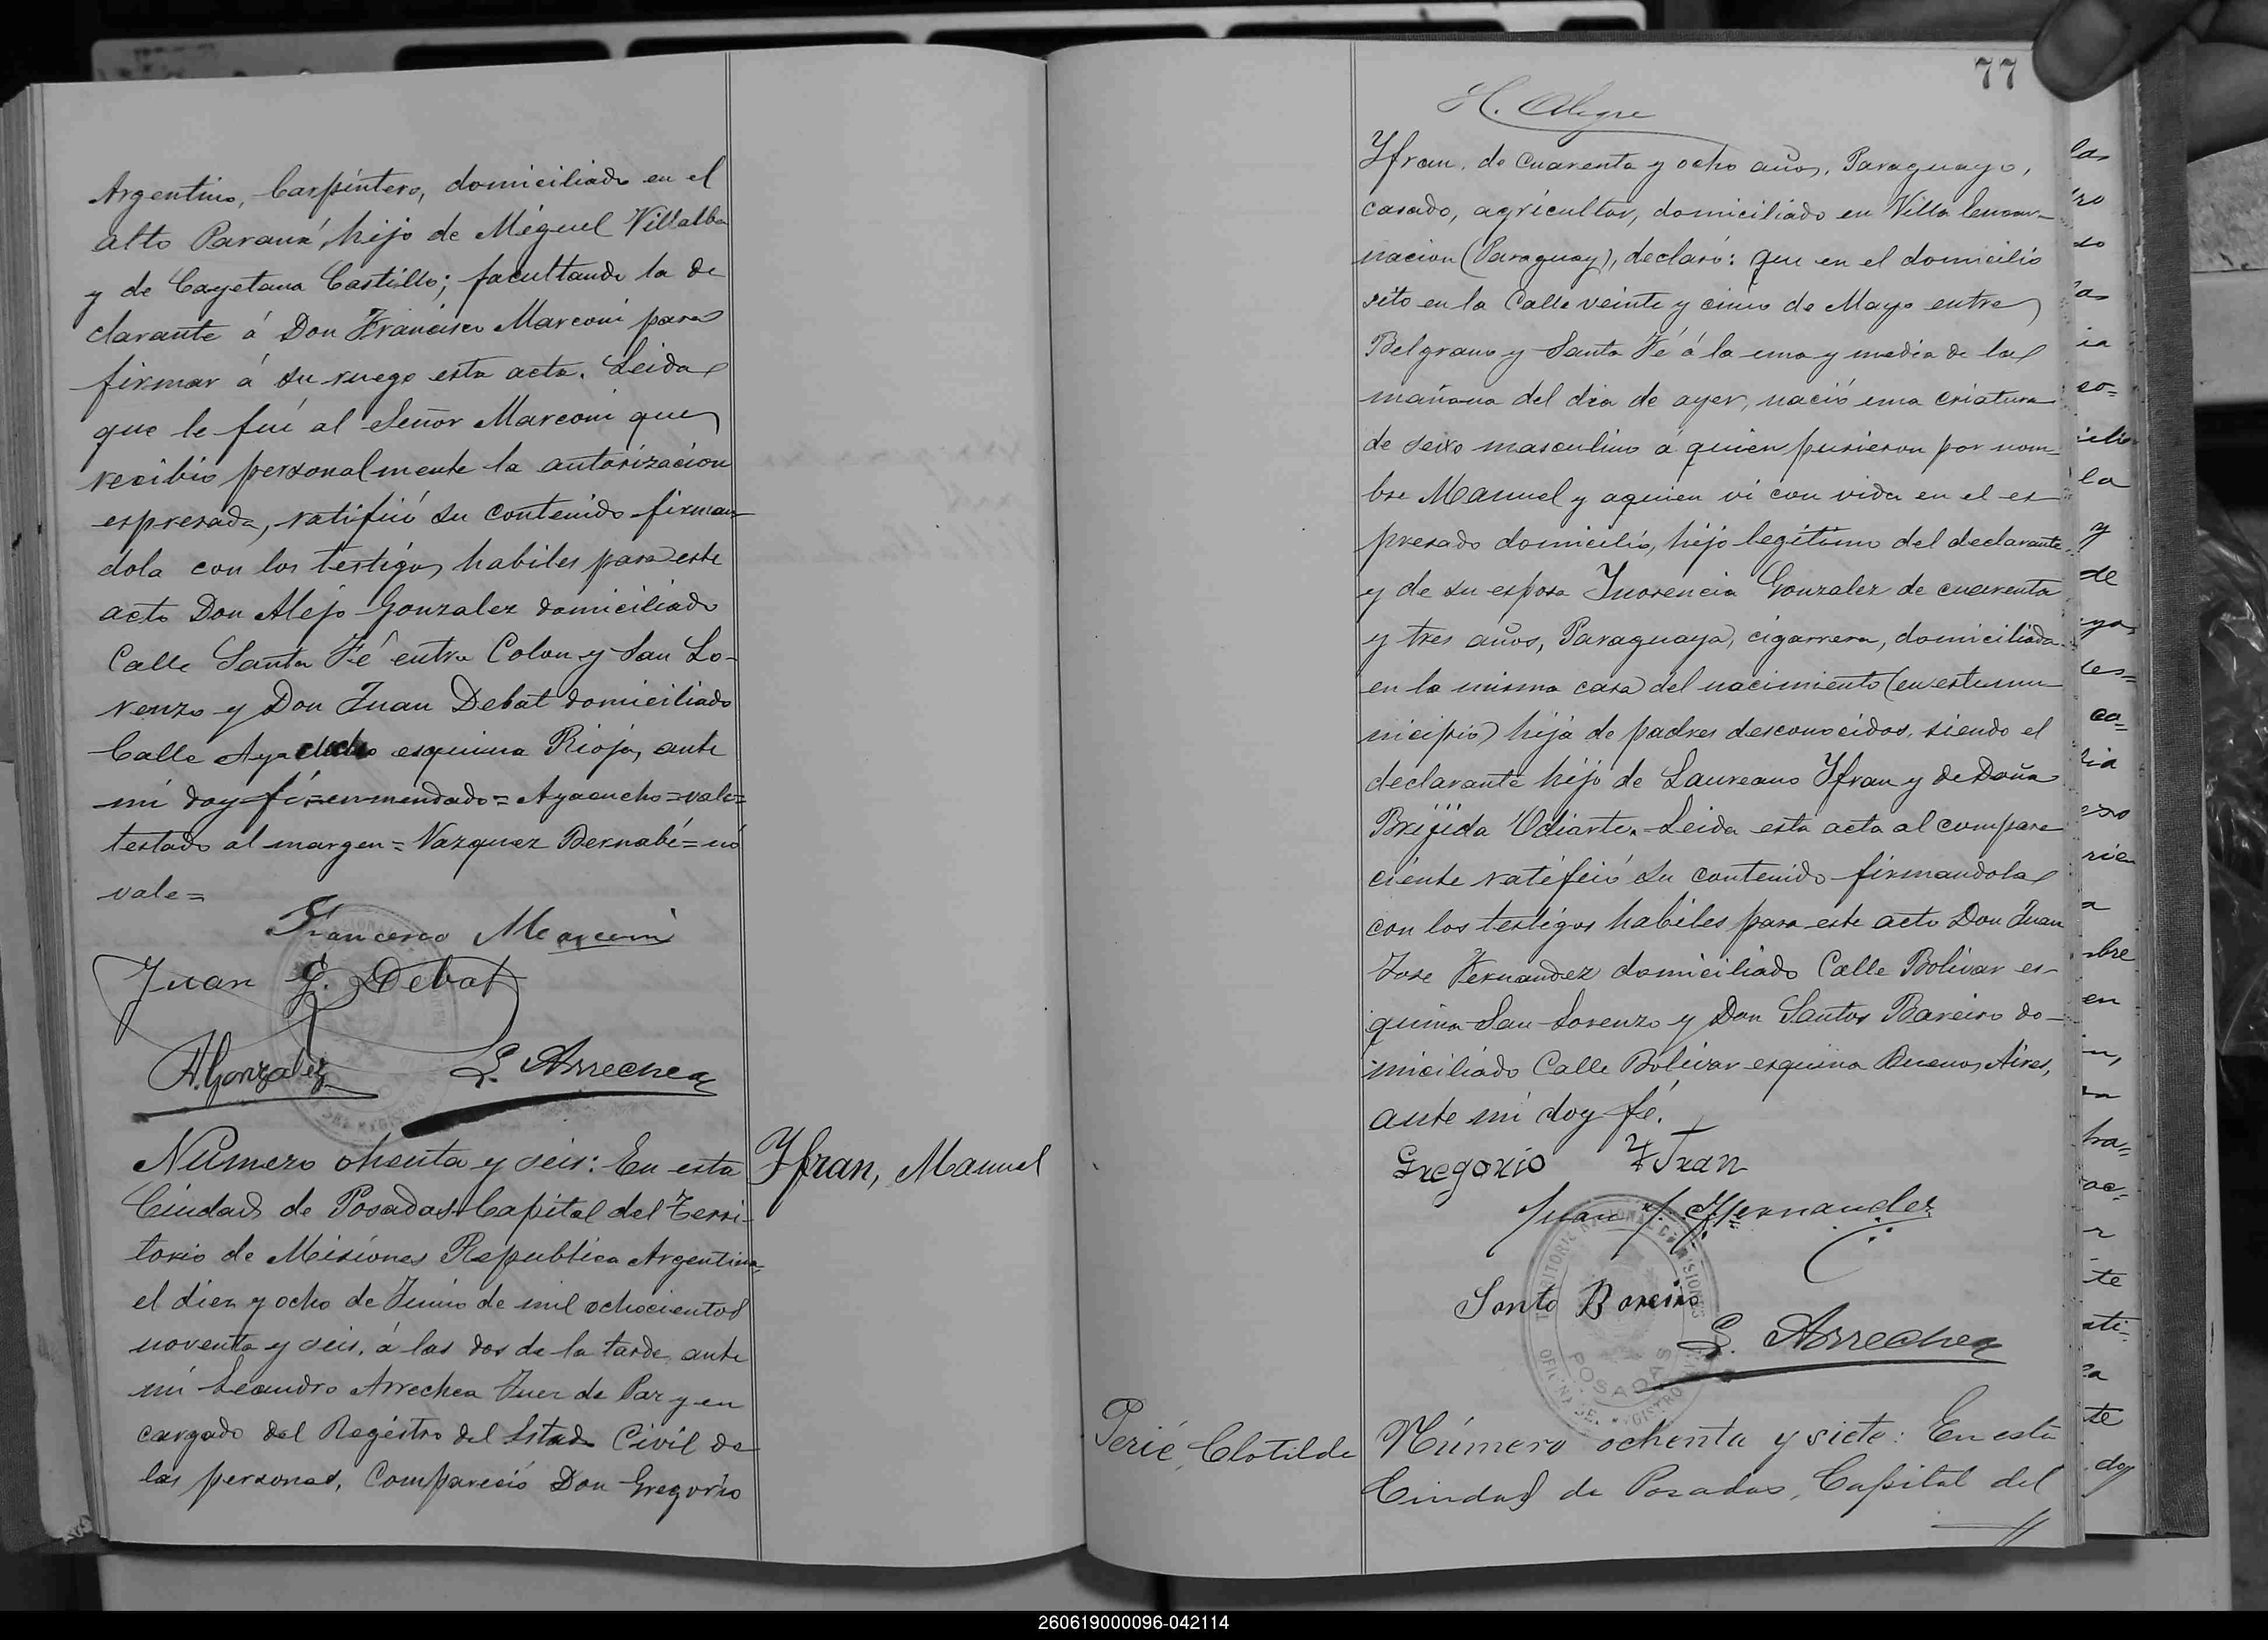 Argentino, Carpintero, domiciliado en el
alto Paraná, hijo de Miguel Villalba
y de Cayetana Castillo; facultando la de
clarante á Don Francisco Marconi para
firmar á su ruego esta acta. Leida
que le fué al Señor Marconi que
recibió personalmente la autorizacion
espresada, ratificó su contenido firman-
dola con los testigos habiles para este
acto Don Alejo Gonzalez domiciliado
Calle Santa Fé entre Colon y San Lo-
renzo y Don Juan Debat domiciliado
Calle Ayacucho esquina Rioja, ante
mi doy fé=enmendado=Ayacucho=vale=
testado al margen=Vazquez Bernabé=nó
vale=
Francisco Marconi
Juan G. Debat
A. Gonzalez L. Arrechea
Número ohenta y seis: En esta
Ciudad de Posadas Capital del Terri-
torio de Misiones Republica Argentina
el diez y ocho de Junio de mil ochocientos
noventa y seis, á las dos de la tarde, ante
mi Leandro Arrechea Juez de Paz y en
cargado del Registro del Estado Civil de
las personas, Compareció Don Gregorio
Yfran, Manuel
77
H. Alegre
Yfran, de cuarenta y ocho años, Paraguayo,
casado, agricultor, domiciliado en Villa Encar-
nacion (Paraguay), declaró: que en el domicilio
sito en la Calle veinte y cinco de Mayo entre
Belgrano y Santa Fé á la una y media de la
mañana del dia de ayer, nació una criatura
de sexo masculino a quien pusieron por nom-
bre Manuel y aquien vi con vida en el es
presado domicilio, hijo legitimo del declarante
y de su esposa Inosencia Gonzalez de cuarenta
y tres años, Paraguaya, cigarrera, domiciliada
en la misma casa del nacimiento (en este mu
nicipio) hija de padres desconocidos, siendo el
declarante hijo de Laureano Yfran y de Doña
Brijida Udiarte. Leida esta acta al compare
ciente ratificó su contenido firmandola
con los testigos habiles para este acto Don Juan
Jose Fernandez domiciliado Calle Bolivar es-
quina San Lorenzo y Don Santos Bareiro do-
miciliado Calle Bolivar esquina Buenos Aires,
ante mi doy fé.
Gregorio Yfran
Juan J. Fernandez
Santo Bareiro
L. Arrechea
POSADAS
Perié, Clotilde
Número ochenta y siete: En esta
Ciudad de Posadas, Capital del
260619000096-042114